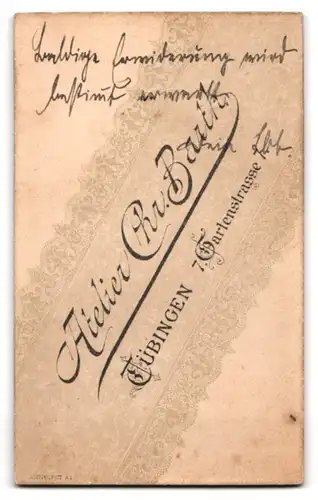 Baldige Erwiderung wird
bestimt erwartet.
Dein
Atelier Chr. Barth.
TÜBINGEN 7. Gartenstrasse 7.